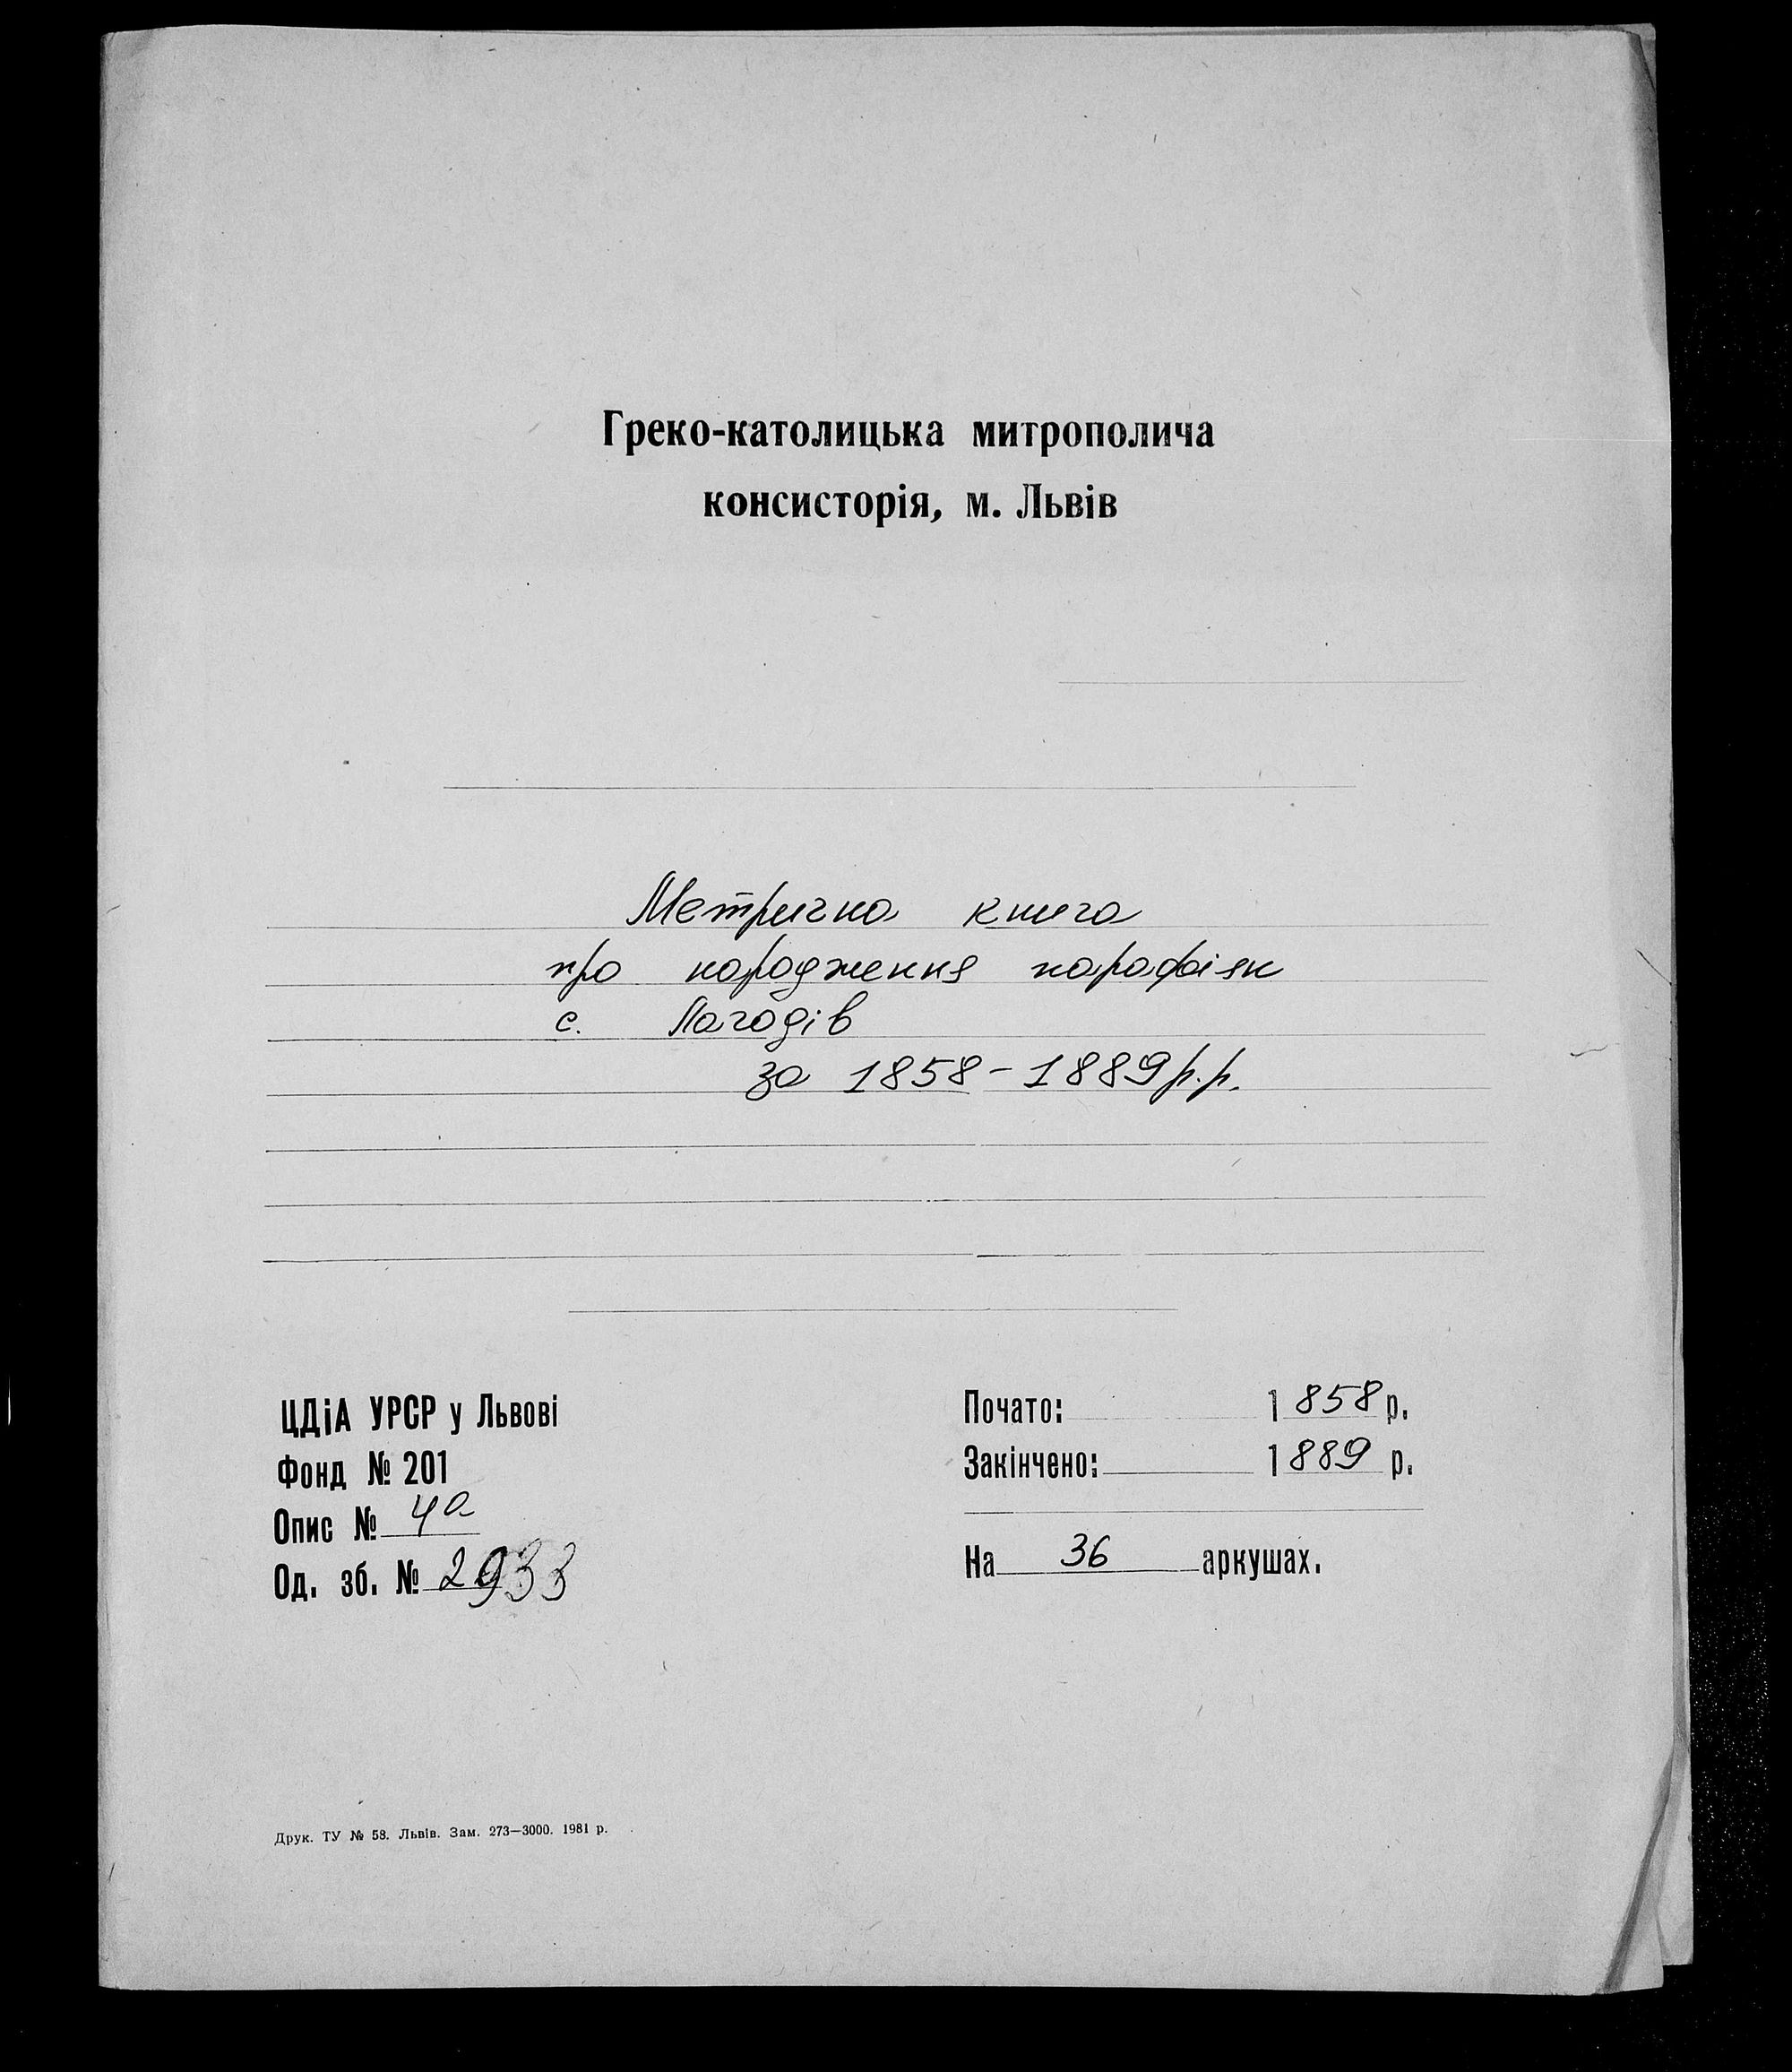 Греко-католицька митрополича
консисторія, м. Львів
Метрична книга
про народження парафіян
с. Лагодів
за 1858 - 1889 р.р.
ЦДіА УРСР у Львові
Фонд № 201
Опис № 4а
Од. зб. № 2933
Почато: 1858 р.
Закінчено: 1889 р.
На 36 аркушах.
Друк. ТУ № 58. Львів. Зам. 273—3000. 1981 р.